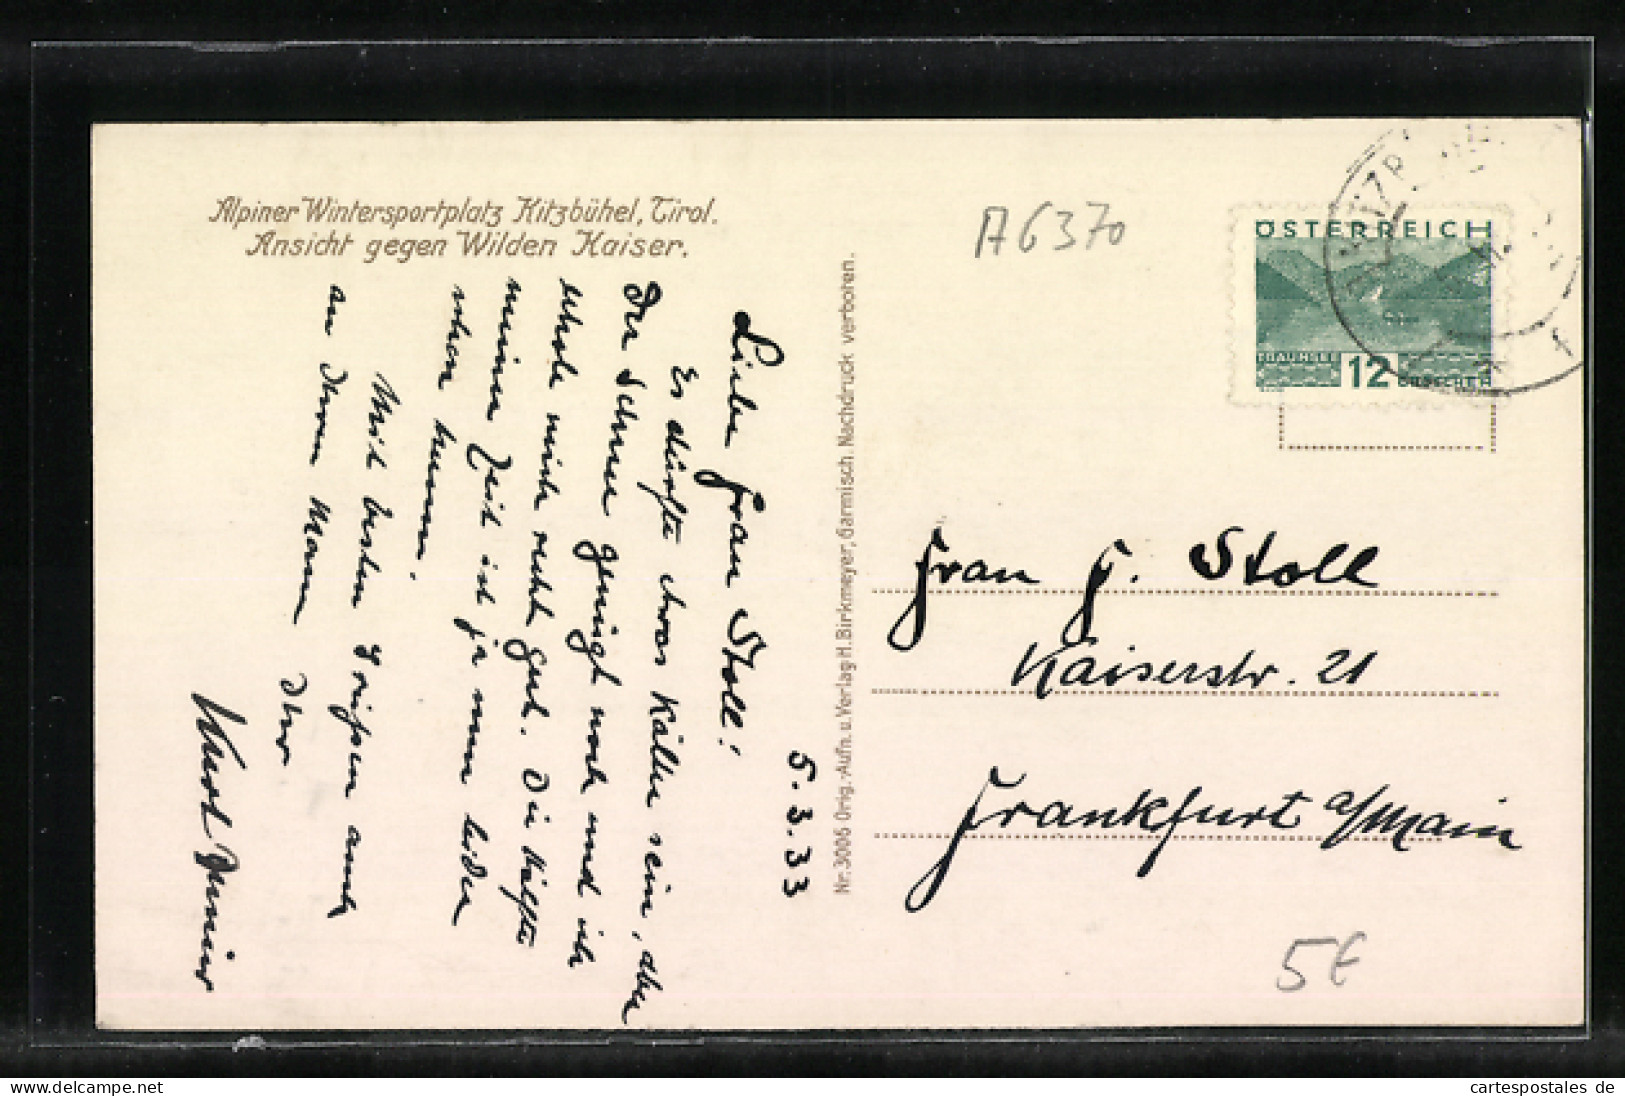 Alpiner Wintersportplatz Kitzbühel, Tirol.
Ansicht gegen Wilden Kaiser.
5.3.33
Liebe Frau Stoll!
Es dürfte etwas kälter sein, aber
der Schnee genügt noch und ich
erhole mich recht gut. Die Hälfte
meiner Zeit ist ja nun leider
schon herum.
Mit besten Grüssen auch
an Ihren Mann Ihr
Kurt
Nr. 3006 Orig.-Aufn. u. Verlag H. Birkmeyer, Garmisch. Nachdruck verboten.
A6370
ÖSTERREICH
TRAUNSEE 12 GROSCHEN
Frau F. Stoll
Kaiserstr. 21
Frankfurt a/Main
5€
hpm-e-archiv-r1
cartespostales de